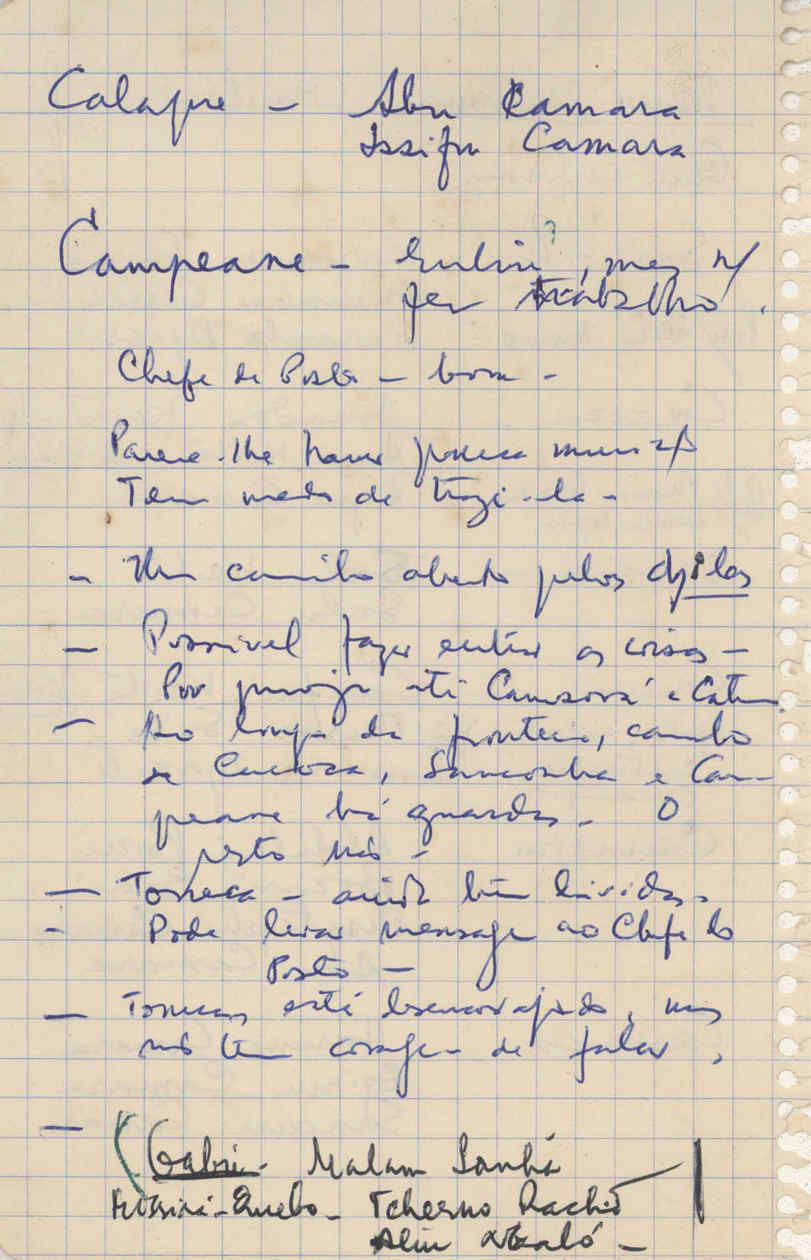 Calaque - Abu Camara
Issifu Camara
Campeane - , mas n/
fez trabalho.
Chefe de Posto - bom -
Parece-lhe haver pouca
Tem medo de trazê-la -
- Um caminho aberto pelos djilas
- Possível fazer entrar as coisas -
Por até Camissorá e
- Ao longo da fronteira, caminho
de Cacoca, Sanconha e Cam-
peane há guardas. O
resto não -
- Toneca - ainda tem dívidas.
- Pode levar mensagem ao Chefe do
Posto -
- Tonecas está desencorajado, mas
não tem coragem de falar,
-
(Gabú - Malam Sanhá
Missirá-Quebo - Tcherno Rachid
Aliu